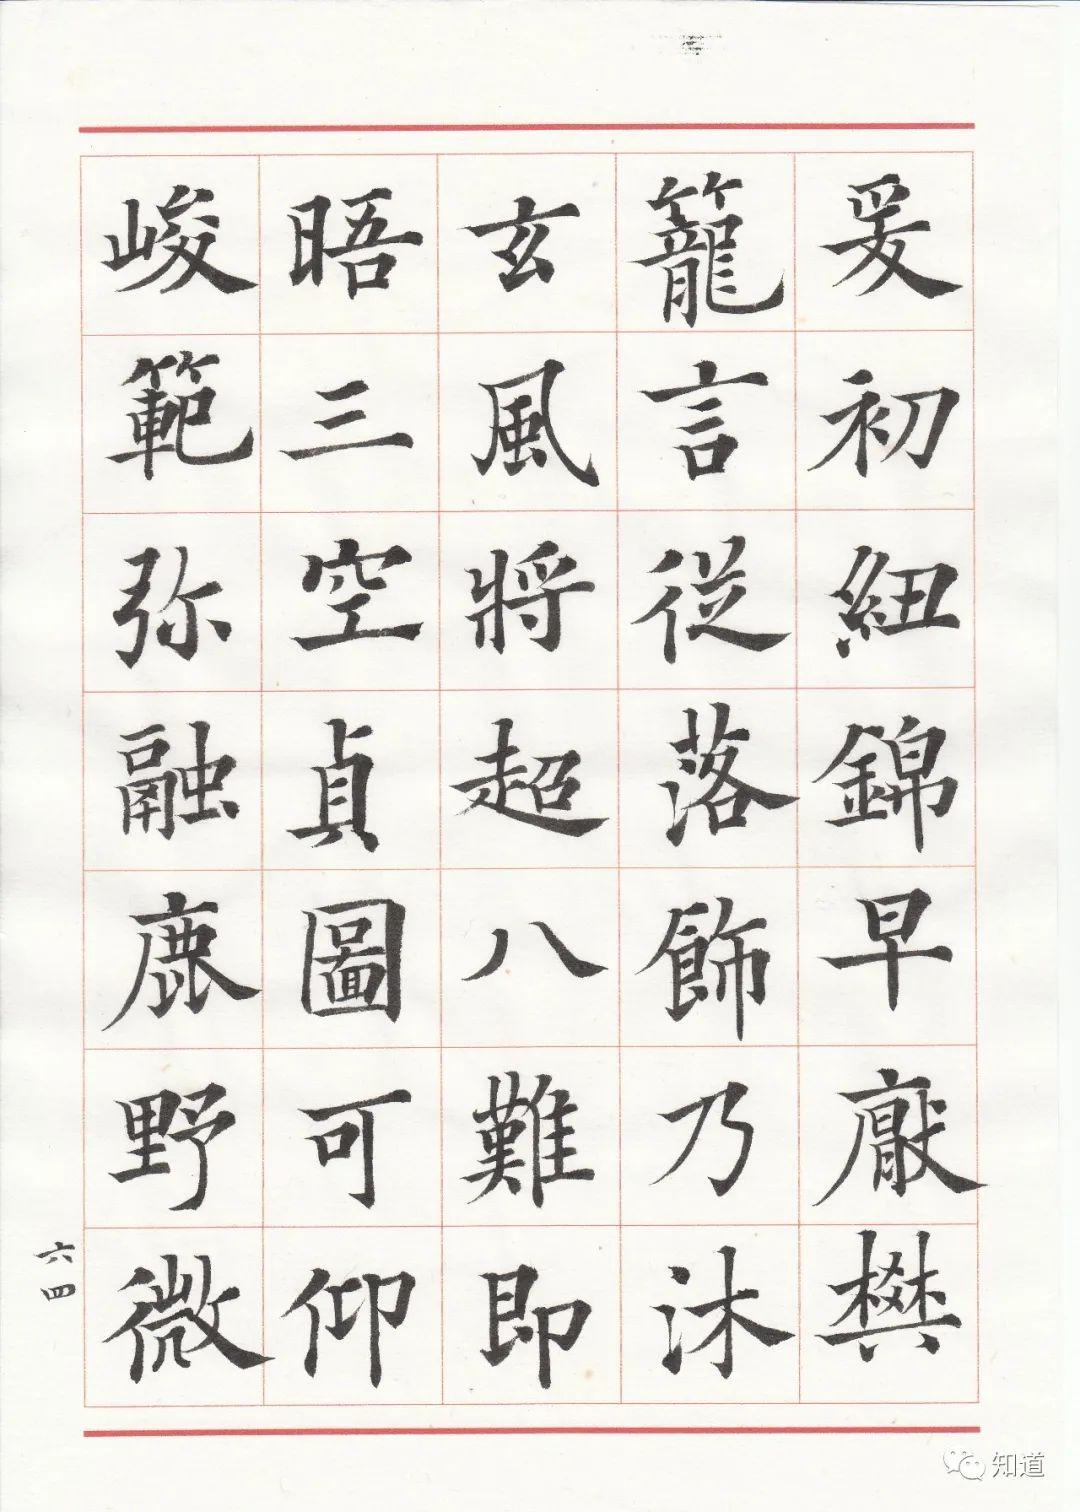 爰初紐錦早厭樊
籠言從落飾乃沐
玄風將超八難即
晤三空貞圖可仰
峻範弥融鹿野微
六四
知道